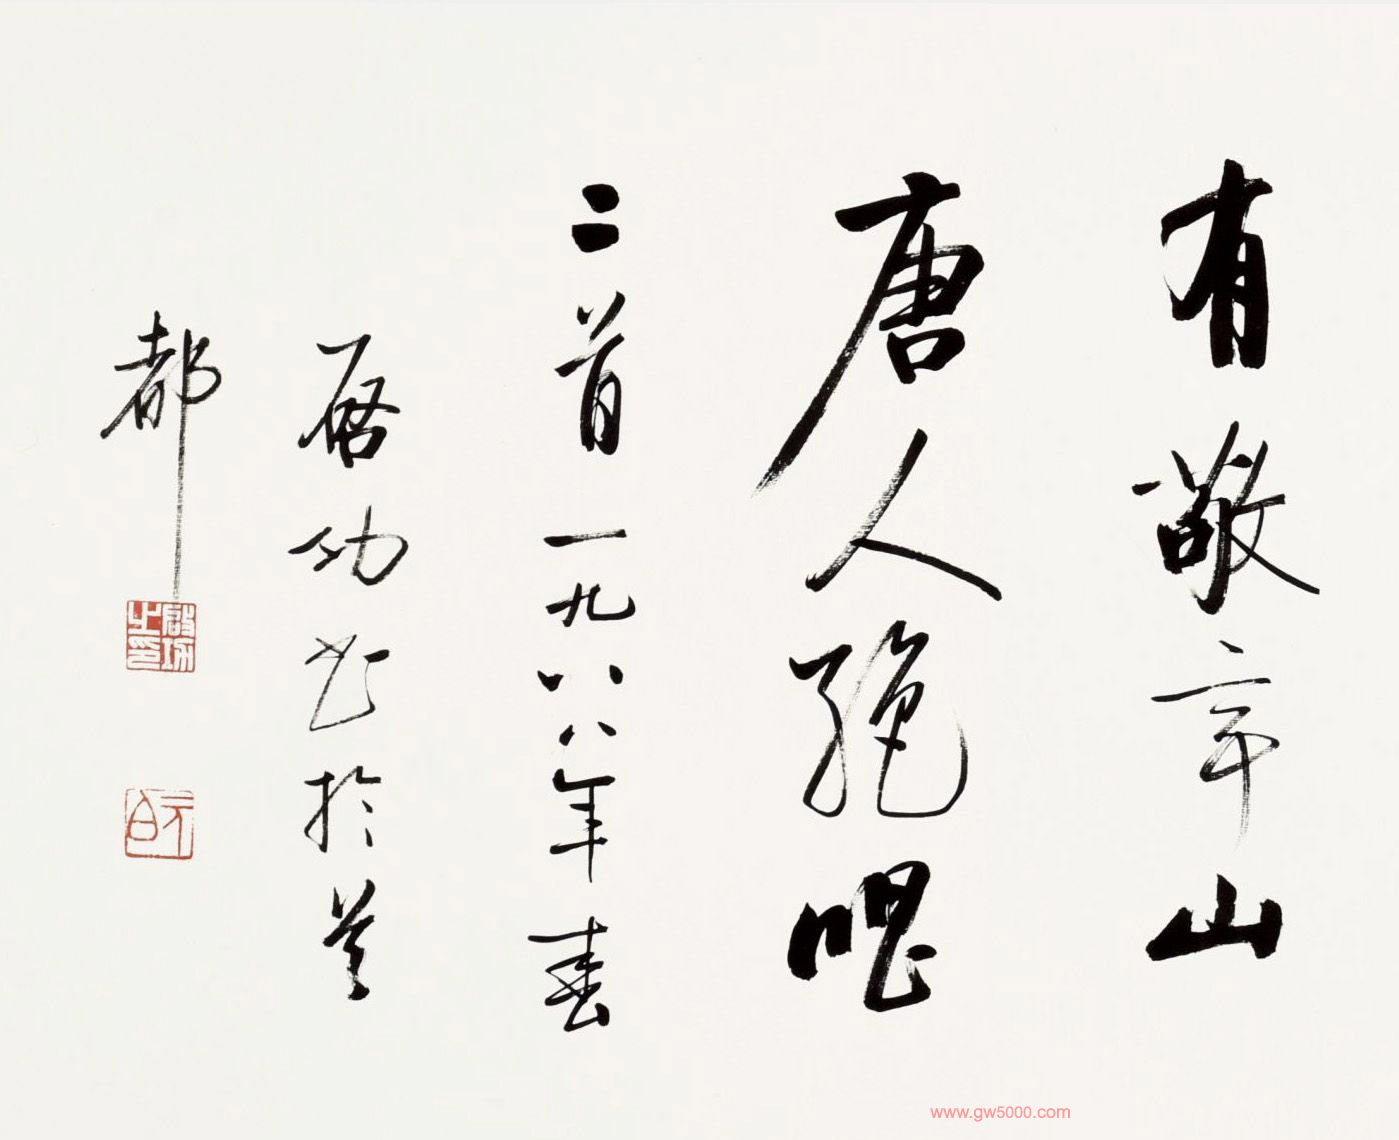 有敬亭山
唐人絶唱
二首一九八八年春
啓功书於首
都
啟功之印
元白
www.gw5000.com